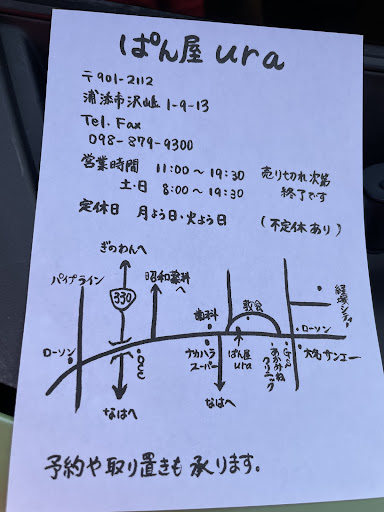 ぱん屋 ura
〒901-2112
浦添市沢岻 1-9-13
Tel. Fax
098-879-9300
営業時間 11:00～19:30
土・日 8:00～19:30
売り切れ次第
終了です
定休日 月よう日・火よう日
(不定休あり)
ぎのわんへ
パイプライン
330
昭和薬科へ
歯科
教会
経塚シティー
ローソン
ローソン
ナカハラ
スーパー
ぱん屋
ura
クリニック
大名サンエー
なはへ
なはへ
予約や取り置きも承ります。